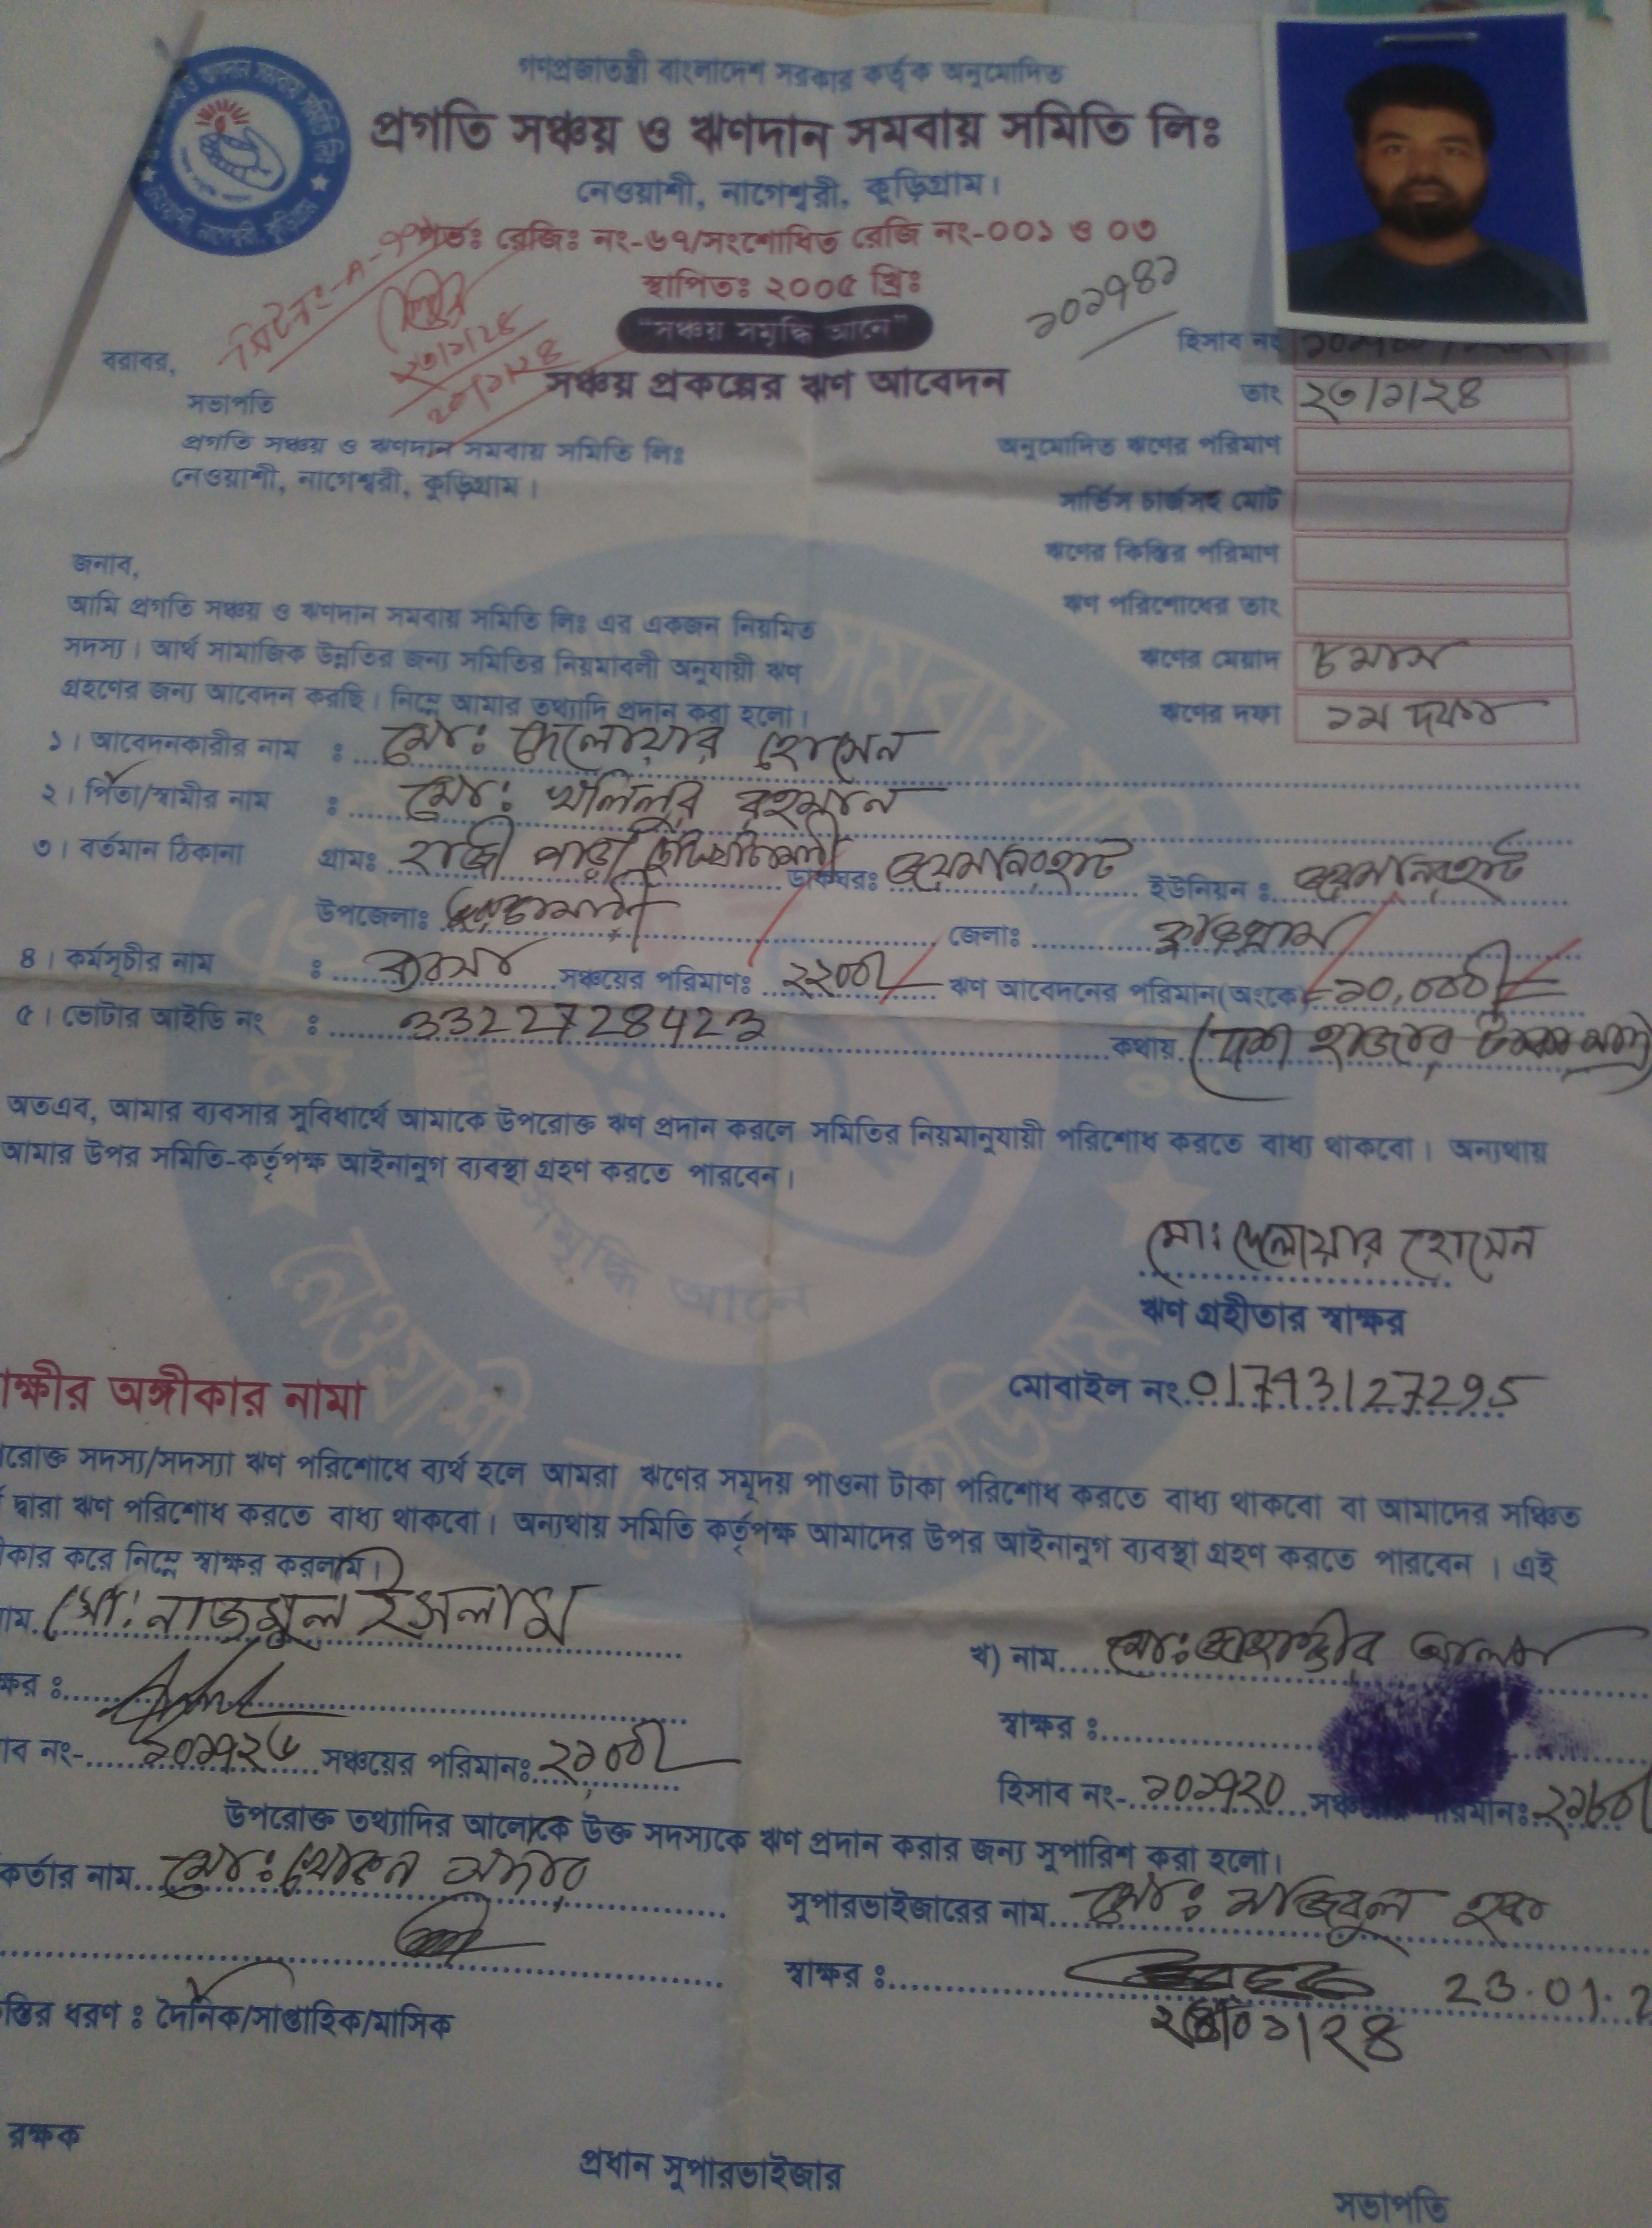 গণপ্রজাতন্ত্রী বাংলাদেশ সরকার কর্তৃক অনুমোদিত
প্রগতি সঞ্চয় ও ঋণদান সমবায় সমিতি লিঃ
নেওয়াশী, নাগেশ্বরী, কুড়িগ্রাম।
রেজিঃ নং-৬৭/সংশোধিত রেজি নং-০০১ ও ০৩
স্থাপিতঃ ২০০৫ খ্রিঃ
"সঞ্চয় সমৃদ্ধি আনে"
১০১৭৪১
হিসাব নং
বরাবর,
২৩/১/২৪
সঞ্চয় প্রকল্পের ঋণ আবেদন
তাং ২৩/১/২৪
সভাপতি
প্রগতি সঞ্চয় ও ঋণদান সমবায় সমিতি লিঃ
নেওয়াশী, নাগেশ্বরী, কুড়িগ্রাম।
অনুমোদিত ঋণের পরিমাণ
সার্ভিস চার্জসহ মোট
ঋণের কিস্তির পরিমাণ
ঋণ পরিশোধের তাং
ঋণের মেয়াদ ৮ মাস
ঋণের দফা ১ম দফা
জনাব,
আমি প্রগতি সঞ্চয় ও ঋণদান সমবায় সমিতি লিঃ এর একজন নিয়মিত
সদস্য। আর্থ সামাজিক উন্নতির জন্য সমিতির নিয়মাবলী অনুযায়ী ঋণ
গ্রহণের জন্য আবেদন করছি। নিম্নে আমার তথ্যাদি প্রদান করা হলো।
১। আবেদনকারীর নাম : মোঃ দেলোয়ার হোসেন
২। পিতা/স্বামীর নাম : মোঃ খলিলুর রহমান
৩। বর্তমান ঠিকানা গ্রামঃ হাজী পাড়া ডাকঘরঃ জয়মনিরহাট ইউনিয়ন : জয়মনিরহাট
উপজেলাঃ ভুরুঙ্গামারী জেলাঃ কুড়িগ্রাম
৪। কর্মসূচীর নাম : ব্যবসা সঞ্চয়ের পরিমাণঃ ২২০০/- ঋণ আবেদনের পরিমান(অংকে) = ১০,০০০/-
৫। ভোটার আইডি নং : 3322728423 কথায় (দশ হাজার টাকা মাত্র)
অতএব, আমার ব্যবসার সুবিধার্থে আমাকে উপরোক্ত ঋণ প্রদান করলে সমিতির নিয়মানুযায়ী পরিশোধ করতে বাধ্য থাকবো। অন্যথায়
আমার উপর সমিতি-কর্তৃপক্ষ আইনানুগ ব্যবস্থা গ্রহণ করতে পারবেন।
মোঃ দেলোয়ার হোসেন
ঋণ গ্রহীতার স্বাক্ষর
মোবাইল নং 01743127295
ক্ষীর অঙ্গীকার নামা
রোক্ত সদস্য/সদস্যা ঋণ পরিশোধে ব্যর্থ হলে আমরা ঋণের সমূদয় পাওনা টাকা পরিশোধ করতে বাধ্য থাকবো বা আমাদের সঞ্চিত
দ্বারা ঋণ পরিশোধ করতে বাধ্য থাকবো। অন্যথায় সমিতি কর্তৃপক্ষ আমাদের উপর আইনানুগ ব্যবস্থা গ্রহণ করতে পারবেন। এই
কার করে নিম্নে স্বাক্ষর করলাম।
াম মোঃ নাজমুল ইসলাম
খ) নাম মোঃ জাহাঙ্গীর আলম
ক্ষর :
স্বাক্ষর :
ব নং- ১০১৭২৬ সঞ্চয়ের পরিমানঃ ২১০০/-
হিসাব নং- ১০১৭২০ পরিমানঃ
উপরোক্ত তথ্যাদির আলোকে উক্ত সদস্যকে ঋণ প্রদান করার জন্য সুপারিশ করা হলো।
কর্তার নাম মোঃ খোকন
সুপারভাইজারের নাম মোঃ মজিবুল হক
স্বাক্ষর : 23.01.2
০১/২৪
স্তির ধরণ : দৈনিক/সাপ্তাহিক/মাসিক
রক্ষক
প্রধান সুপারভাইজার
সভাপতি